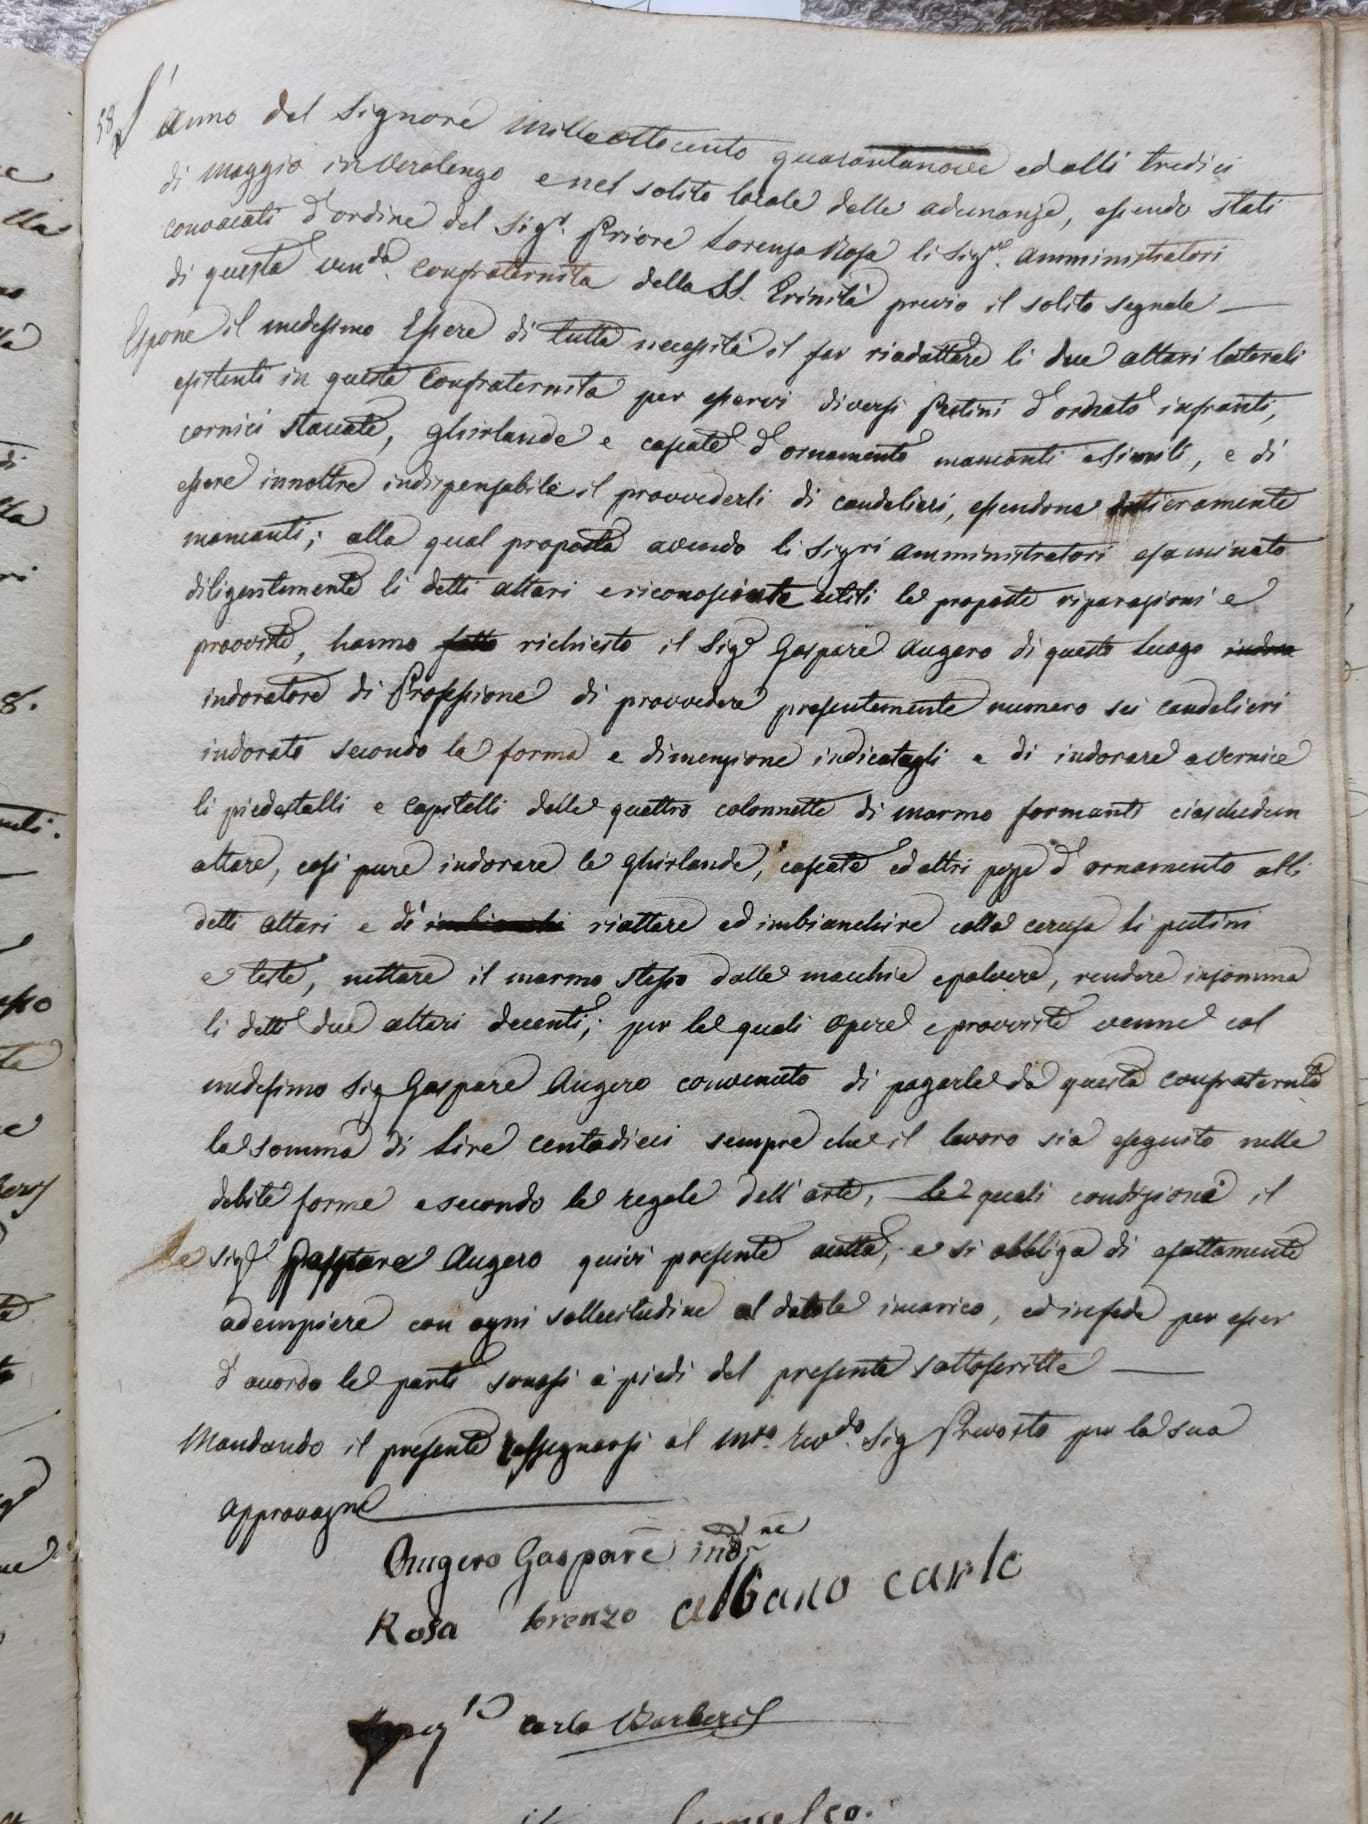 58 L'anno del Signore mille ottocento quarantanove ed alli tredici
di maggio in Verolengo e nel solito locale delle adunanze, essendo stati
convocati d'ordine del Sigr. Priore Lorenzo Rosa li Sigri. Amministratori
di questa venda. Confraternita della SS. Trinità previo il solito segnale —
Espone il medesimo Essere di tutta necessità il far riadattare li due altari laterali
esistenti in questa Confraternita per esservi diversi Puttini d'ornato infranti,
cornici staccate, ghirlande e cascate d'ornamento mancanti e simili, e di
essere innoltre indispensabile il provvederli di candelieri, essendone intieramente
mancanti; alla qual proposta avendo li Sigri Amministratori esaminato
diligentemente li detti altari e riconosciute utili le proposte riparazioni e
provviste, hanno fatto richiesto il Sigr Gaspare Augero di questo luogo indora
indoratore di Professione di provvedere presentemente numero sei candelieri
indorati secondo la forma e dimenzione indicatagli e di indorare a vernice
li piedestalli e capitelli delle quattro colonnette di marmo formanti ciaschedun
altare, così pure indorare le ghirlande, cascate ed altri pezzi d'ornamento alli
detti altari e di imbianchi riattare ed imbianchire colla cerusa li putini
e teste, nettare il marmo stesso dalle macchie e polvere, rendere insomma
li detti due altari decenti; per le quali opere e provviste venne col
medesimo Sig Gaspare Augero convenuto di pagarle da questa Confraternita
la somma di Lire centodieci sempre che il lavoro sia eseguito nelle
debite forme e secondo le regole dell'arte, le quali condizioni il
Sigr Gaspare Augero quivi presente accetta, e si obbliga di esattamente
adempiere con ogni sollecitudine al datole incarico, ed in fede per esser
d'accordo le parti sonosi a piedi del presente sottoscritte —
Mandando il presente rassegnarsi al Mto. Revdo. Sig Prevosto per la sua
approvazne
Augero Gaspare indre
Rosa Lorenzo albano carlo
Carlo Barberis